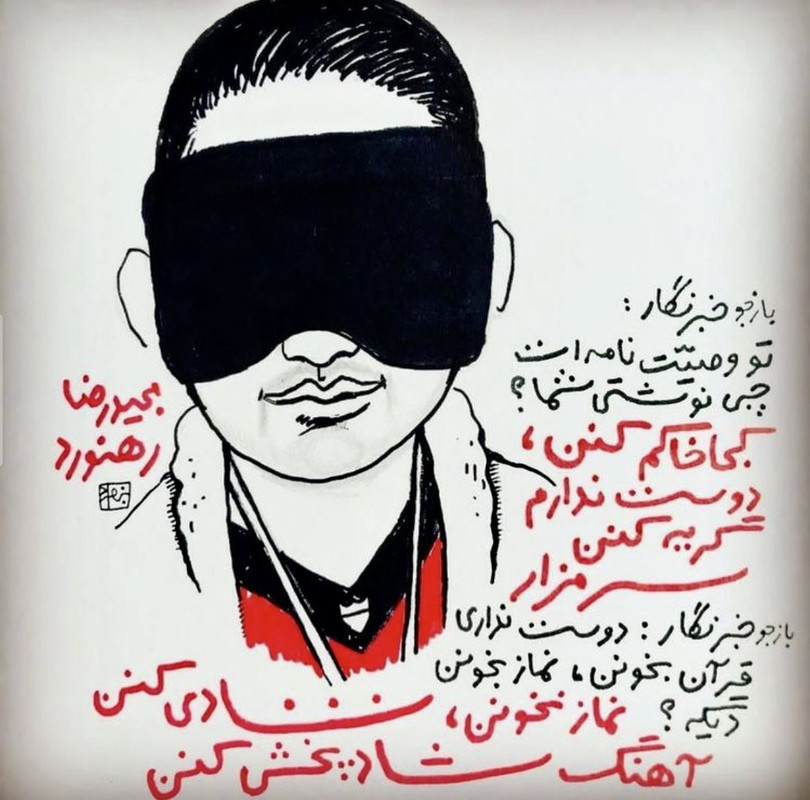 بازجو خبرنگار :
تو وصیّت نامه ات
چی نوشتی شما؟
کجا خاکم کنن،
دوست ندارم
گریه کنن
سر مزار
بازجو خبرنگار : دوست نداری
قرآن بخونن، نماز بخونن
دیگه؟
نماز نخونن، شادی کنن
آهنگ شاد پخش کنن
مجیدرضا
رهنورد